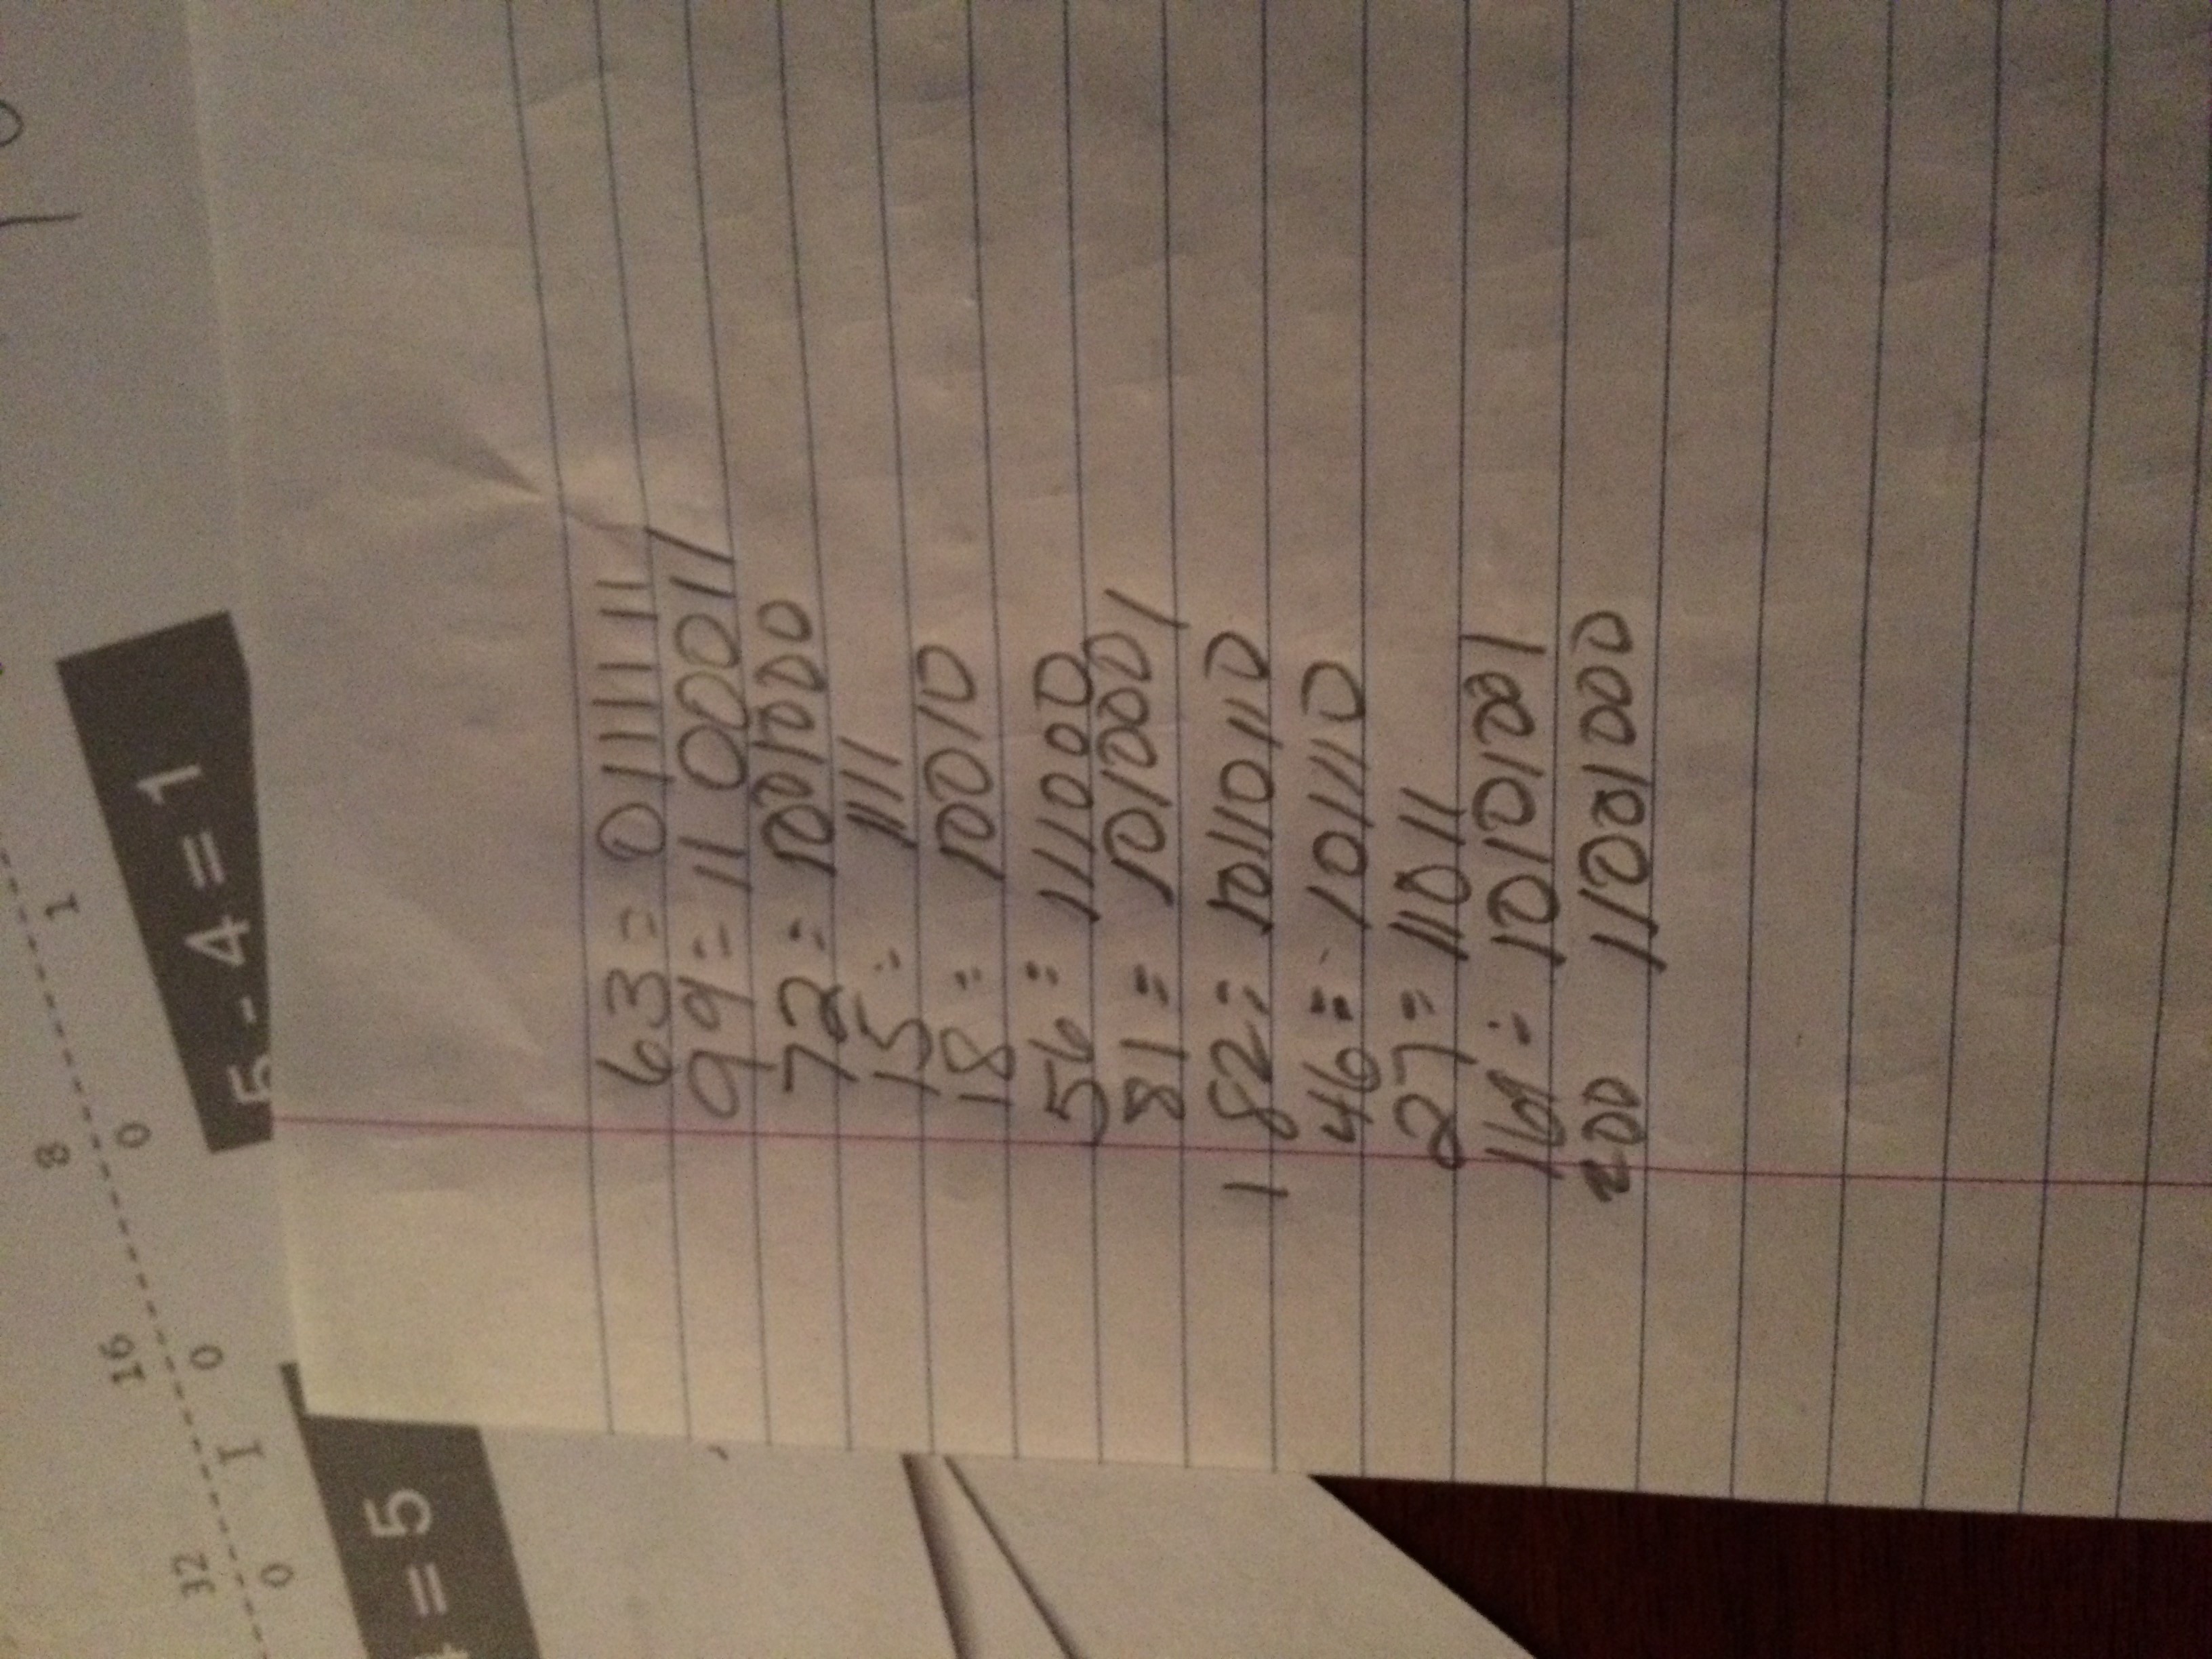 32 16 8
0 1 0 0 1
= 5
5 - 4 = 1
63 = 0111111
99 = 1100011
72 = 1001000
15 = 1111
18 = 10010
56 = 111000
81 = 1010001
182 = 10110110
46 = 101110
27 = 11011
169 = 10101001
200 11001000